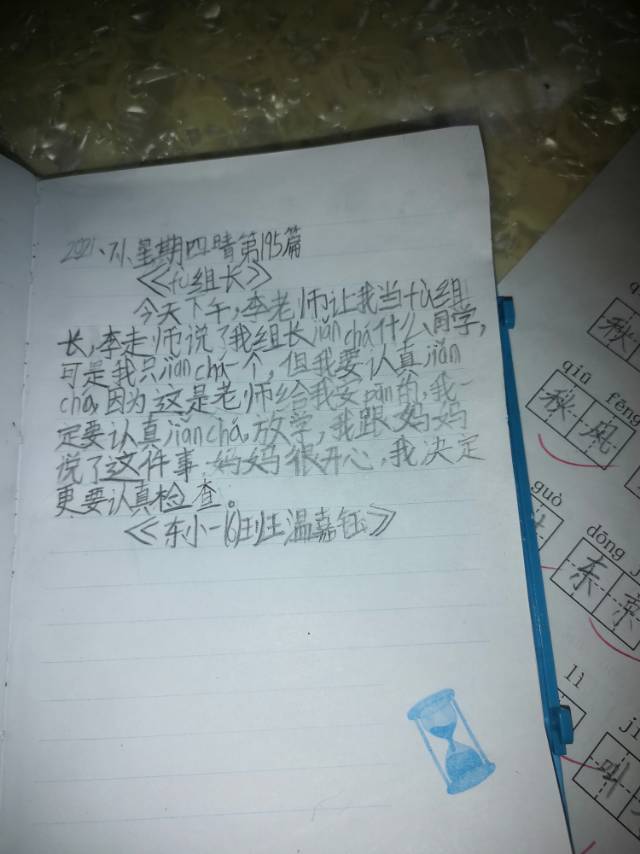 2021、7.1、星期四晴第195篇
《fù组长》
今天下午,李老师让我当fù组
长,李走师说了我组长jiǎn chá什么同学,
可是我只jiǎn chá一个,但我要认真jiǎn
chá,因为这是老师给我安pān的,我一
定要认真jiǎn chá,放学,我跟妈妈
说了这件事,妈妈很开心,我决定
更要认真检查。
《东小一(6)班温嘉钰》
秋
qiū fēng
秋风
guò
dōng
东
lì
叫